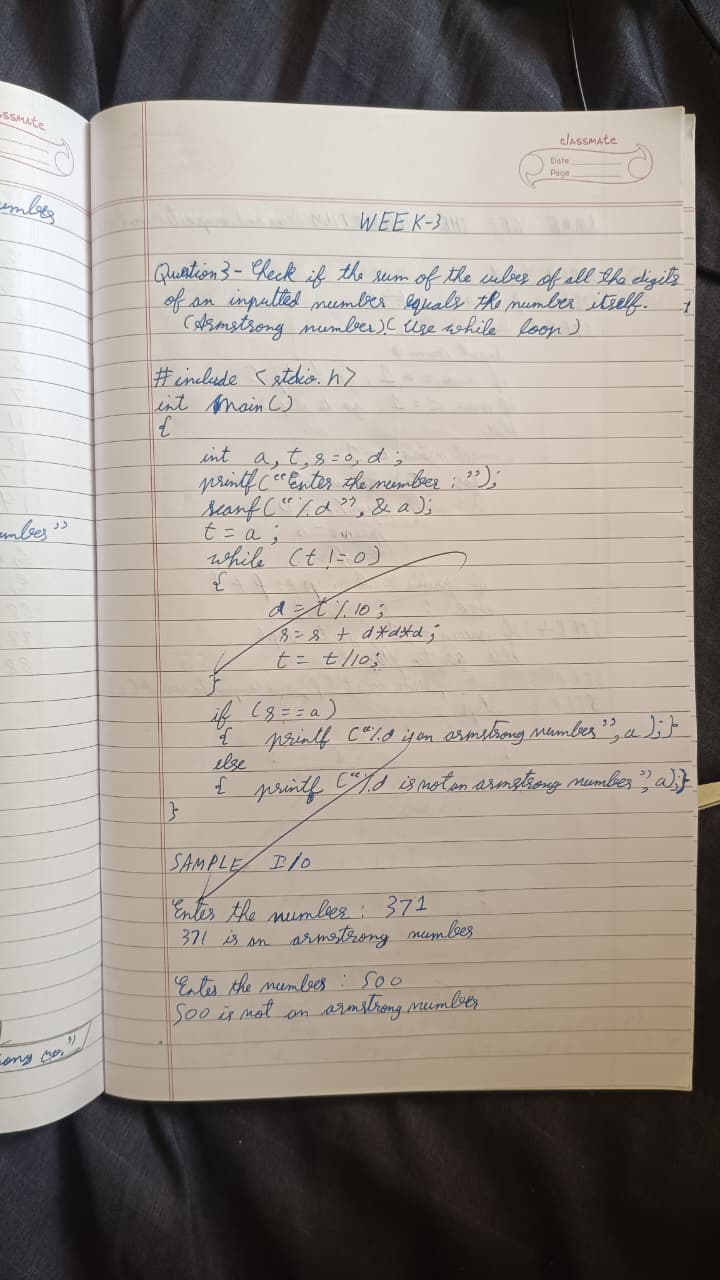 ssmate
umber
umber"
ong no."
classmate
Date
Page
WEEK-3
Question 3 - Check if the sum of the cubes of all the digits
of an inputted number equals the number itself.
(Armstrong number) (Use while loop)
#include <stdio.h>
int main()
{
int a, t, s=0, d;
printf("Enter the number : ");
scanf("%d", &a);
t = a;
while (t != 0)
{
d = t % 10;
s = s + d*d*d;
t = t/10;
}
if (s==a)
{ printf ("%d is an armstrong number", a);}
else
{ printf ("%d is not an armstrong number", a);}
}
SAMPLE I/O
Enter the number : 371
371 is an armstrong number
Enter the number : 500
500 is not an armstrong number